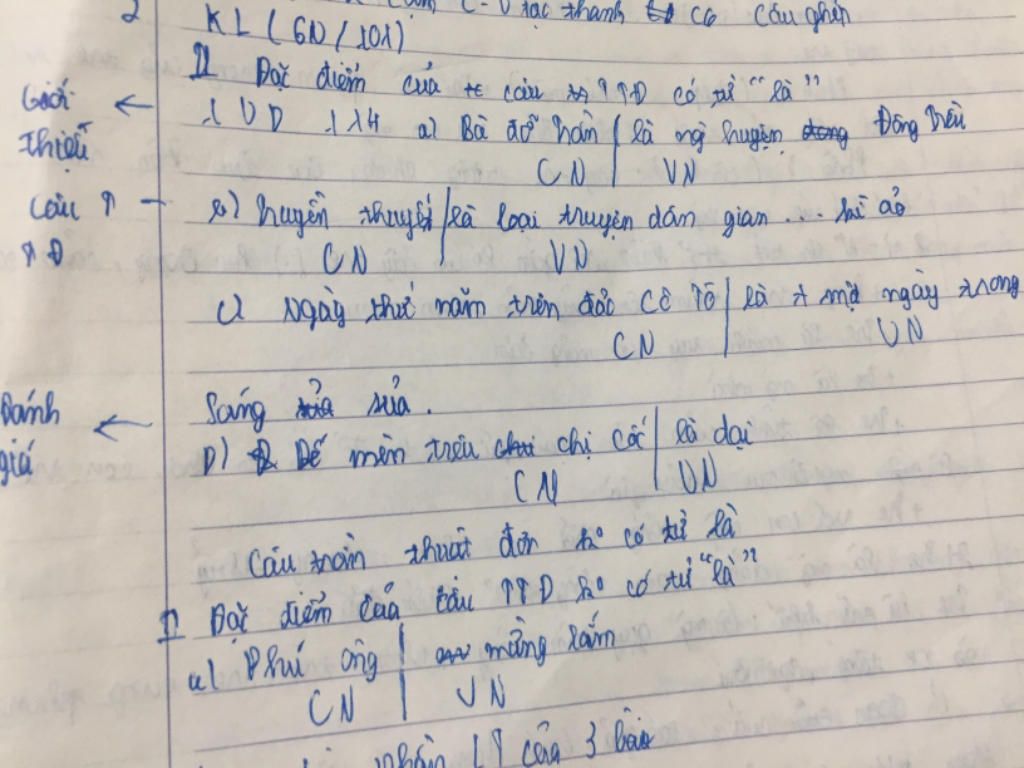 C-V tạc thanh có câu ghép
2 KL (GN/101)
II Đặc điểm của câu TTĐ có từ "là"
Giới thiệu
1 VD 114 a) Bà đỡ Trần | là ng huyện Đông Triều
CN | VN
Câu T
TĐ
b) Truyền thuyết | là loại truyện dân gian ... kì ảo
CN VN
c) Ngày thứ năm trên đảo Cô Tô | là 1 một ngày trong
CN VN
Sáng sủa.
Đánh giá
D) Dế mèn trêu chị cốc | là dại
CN VN
Câu trần thuật đơn ko có từ là
I Đặc điểm của câu TTĐ ko có từ "là"
a) Phú ông | mừng lắm
CN VN
của 3